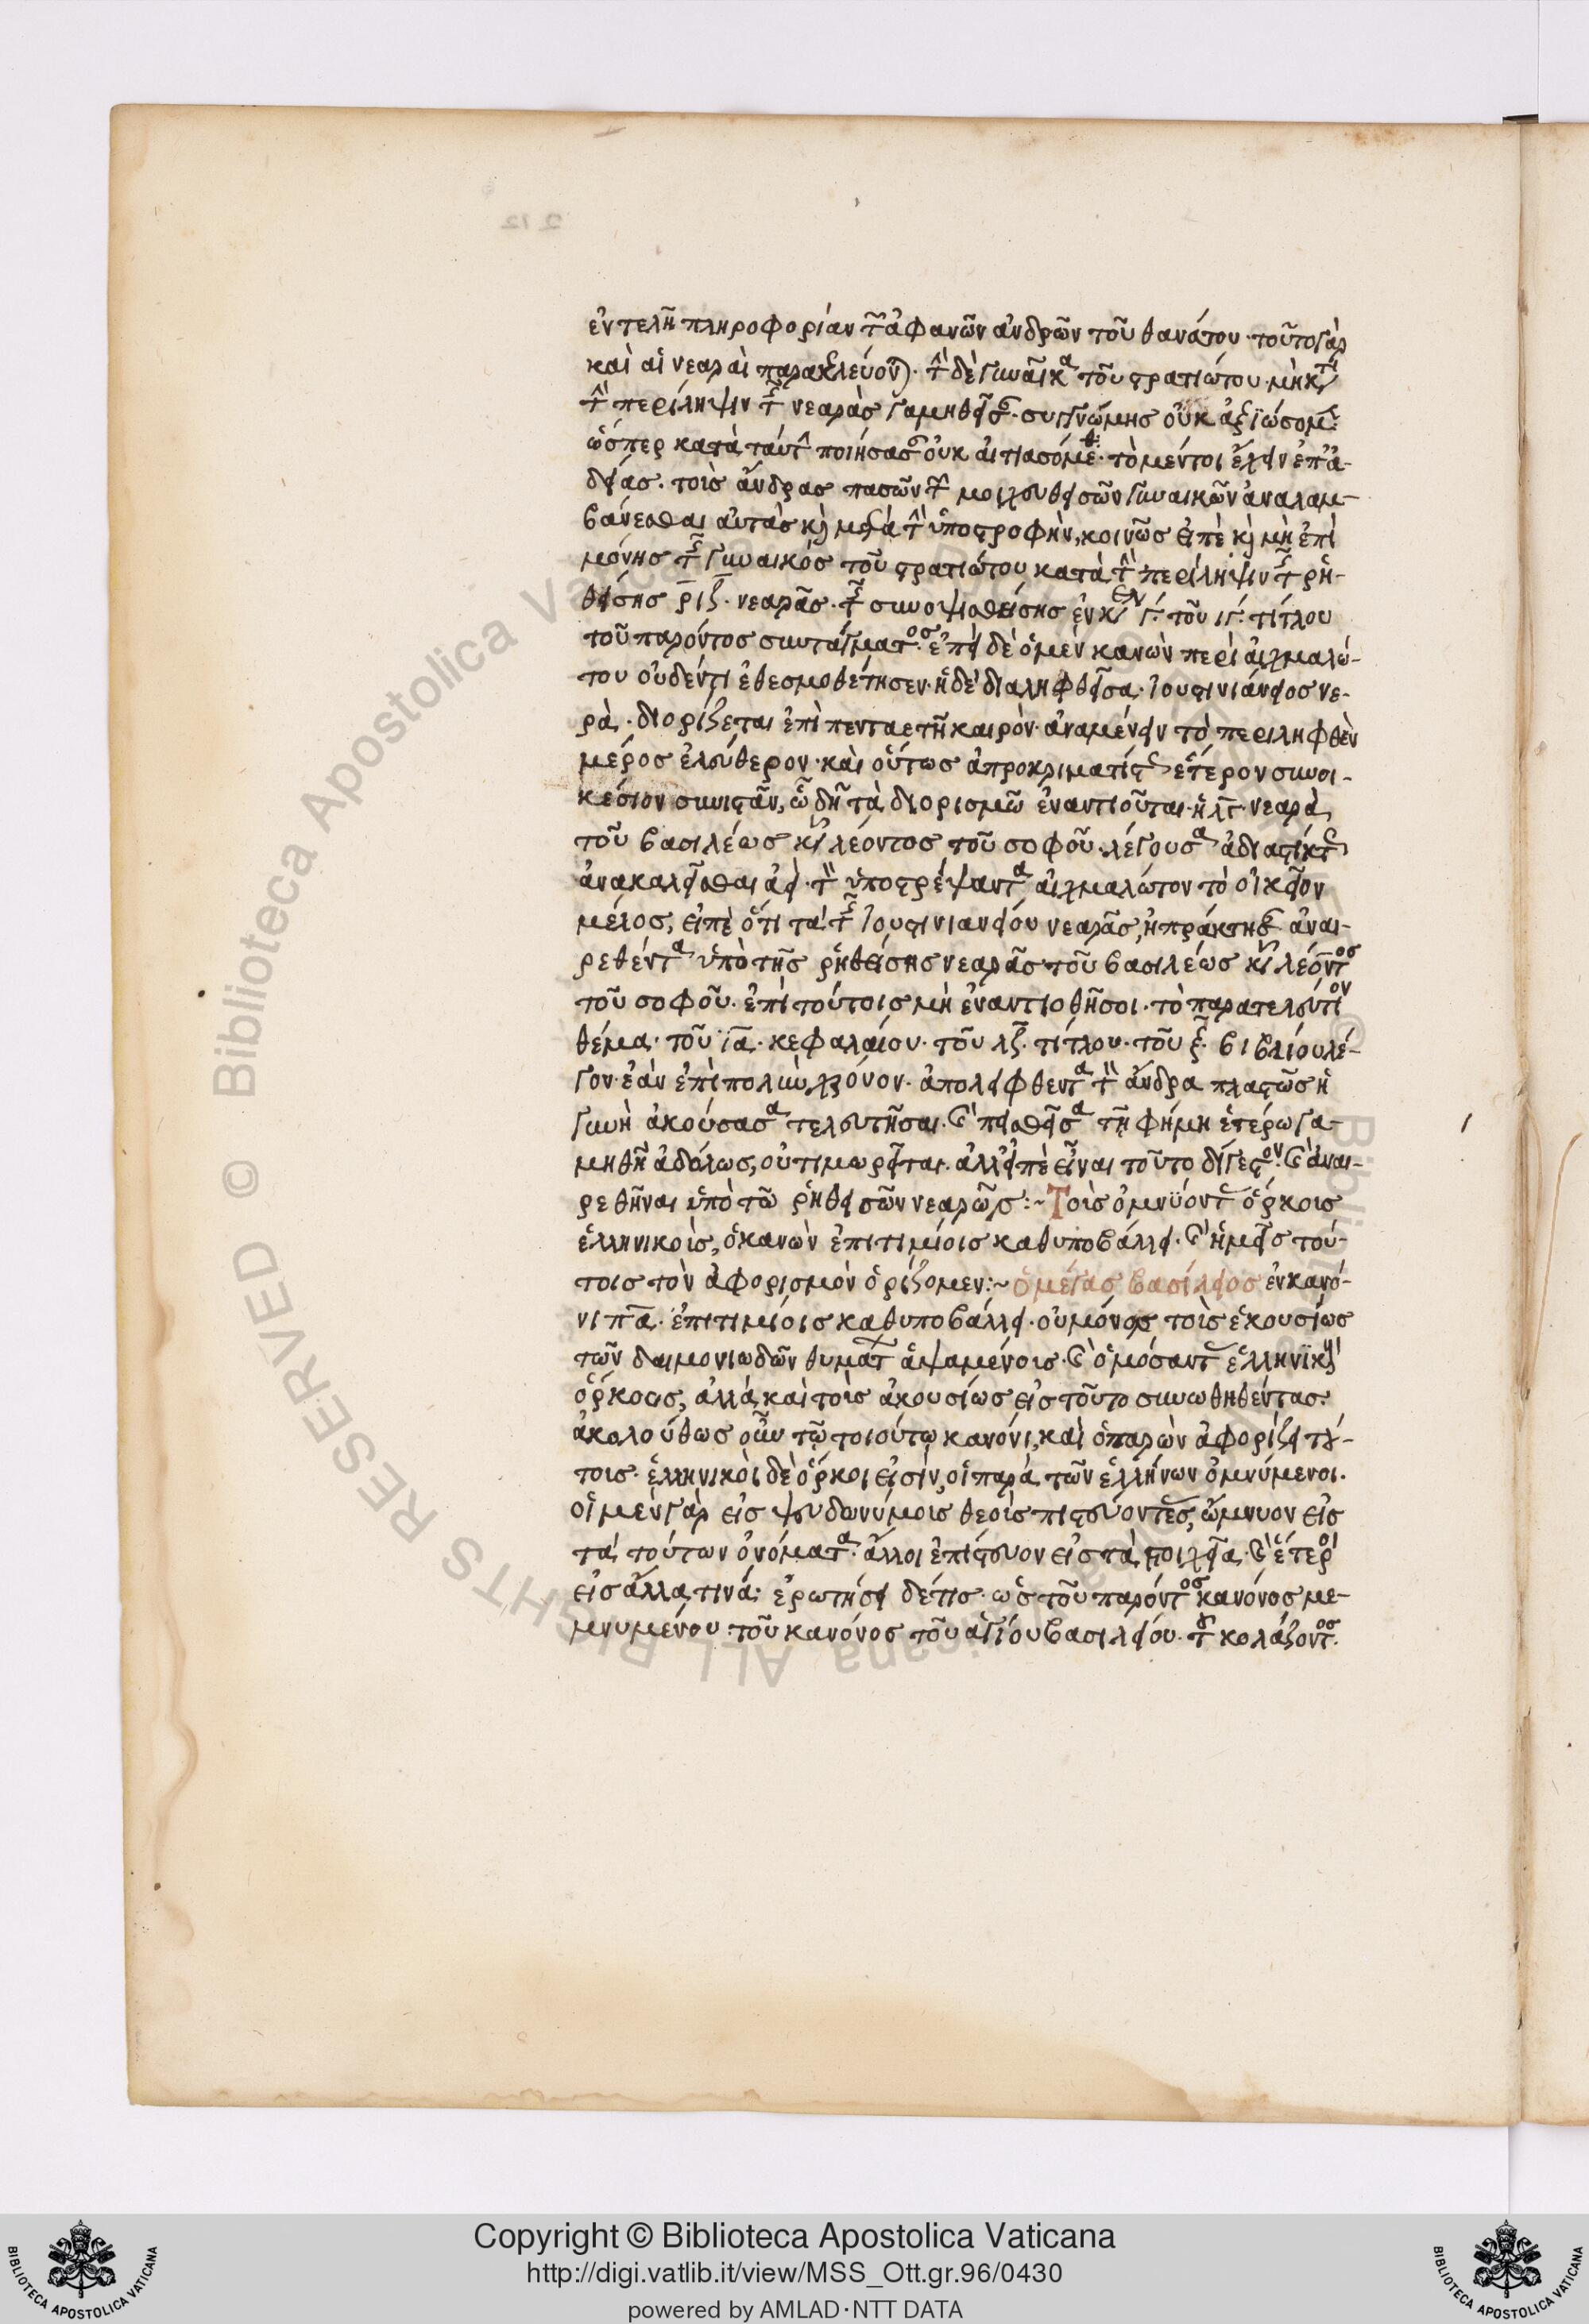 ἐντελῆ πληροφορίαν τῶν ἀφανῶν ἀνδρῶν τοῦ θανάτου· τοῦτο γὰρ
καὶ αἱ νεαραὶ παρακελεύονται· τὴν δὲ γυναῖκα τοῦ στρατιώτου μὴ κατὰ
τὴν περίληψιν τῆς νεαρᾶς γαμηθεῖσαν· συγγνώμης οὐκ ἀξιώσομεν·
ὥσπερ κατὰ ταύτην ποιήσασαν οὐκ αἰτιασόμεθα· τὸ μέντοι ἔχειν ἐπ' ἀ-
δείας· τοὺς ἄνδρας πασῶν τῶν μοιχευθεισῶν γυναικῶν ἀναλαμ-
βάνεσθαι αὐτὰς καὶ μετὰ τὴν ὑποστροφὴν, κοινῶς εἰπὲ καὶ μὴ ἐπὶ
μόνης τῆς γυναικὸς τοῦ στρατιώτου κατὰ τὴν περίληψιν τῆς ῥη-
θείσης ριζ· νεαρᾶς· τῆς συνοψισθείσης ἐν κεφαλαίῳ γ· τοῦ ιγ· τίτλου
τοῦ παρόντος συντάγματος· ἐπεὶ δὲ ὁ μὲν κανὼν περὶ αἰχμαλώ-
του οὐδέν τι ἐθεσμοθέτησεν· ἡ δὲ διαληφθεῖσα Ἰουστινιάνειος νε-
ρὰ· διορίζεται ἐπὶ πενταετῆ καιρὸν ἀναμένειν τὸ περιληφθὲν
μέρος ἐλεύθερον· καὶ οὕτως ἀπροκριματίστως ἕτερον συνοι-
κέσιον συνιστᾶν, ὧ δὴ τὰ διορισμῶ ἐναντιοῦται· ἡ λγ νεαρὰ
τοῦ βασιλέως κυροῦ λέοντος τοῦ σοφοῦ· λέγουσα ἀδιαστίκτως
ἀνακαλεῖσθαι ἀεὶ· τὸν ὑποστρέψαντα αἰχμαλώτον τὸ οἰκεῖον
μέλος, εἰπὲ ὅτι τὰ τῆς Ἰουστινιανείου νεαρᾶς, ἠπράκτησαν ἀναι-
ρεθέντα ὑπὸ τῆς ῥηθείσης νεαρᾶς τοῦ βασιλέως κυροῦ λέοντος
τοῦ σοφοῦ· ἐπὶ τούτοις μὴ ἐναντιοθῆσοι· τὸ παρατελεύτιον
θέμα· τοῦ ια· κεφαλαίου· τοῦ λζ· τίτλου· τοῦ ξ· βιβλίου λέ-
γον· ἐὰν ἐπὶ πολὺν χρόνον· ἀπολειφθεντα τὸν ἄνδρα πλαστῶς ἡ
γυνὴ ἀκούσασα τελευτῆσαι· καὶ πεισθεῖσα τῇ φήμη ἑτέρω γα-
μηθῆ ἀδόλως, οὐ τιμωρεῖται· ἀλλ' εἰπὲ εἶναι τοῦτο δίγεστον· καὶ ἀναι-
ρεθῆναι ὑπὸ τῶ ῥηθεισῶν νεαρῶν :~ Τοῖς ὀμνύοντας ὅρκοις
ἑλληνικοῖς, ὁ κανὼν ἐπιτιμίοις καθυποβάλλει· καὶ ἡμεῖς τού-
τοις τὸν ἀφορισμὸν ὁρίζομεν :~ ὁ μέγας βασίλειος ἐν κανό-
νι πα· ἐπιτιμίοις καθυποβάλλει· οὐ μόνον τοῖς ἑκουσίως
τῶν δαιμονιωδῶν θυμάτων ἁψαμένοις· καὶ ὀμόσαντας ἑλληνικοὺς
ὅρκους, ἀλλὰ καὶ τοῖς ἀκουσίως εἰς τοῦτο συνωθηθέντας·
ἀκολούθως οὖν τῷ τοιούτω κανόνι, καὶ ὁ παρὼν ἀφορίζει τού-
τοις· ἑλληνικοὶ δὲ ὅρκοι εἰσὶν, οἱ παρὰ τῶν ἑλλήνων ὀμνύμενοι·
οἱ μὲν γὰρ εἰς ψευδωνύμοις θεοῖς πιστεύοντες, ὤμνυον εἰς
τὰ τούτων ὀνόματα· ἄλλοι ἐπίστευον εἰς τὰ στοιχεῖα· καὶ ἕτεροι
εἰς ἄλλα τινά· ἐρωτήσει δέ τις· ὡς τοῦ παρόντος κανόνος με-
μνυμένου τοῦ κανόνος τοῦ ἁγίου βασιλείου· τοῦ κολάζοντος
Copyright © Biblioteca Apostolica Vaticana
http://digi.vatlib.it/view/MSS_Ott.gr.96/0430
powered by AMLAD·NTT DATA